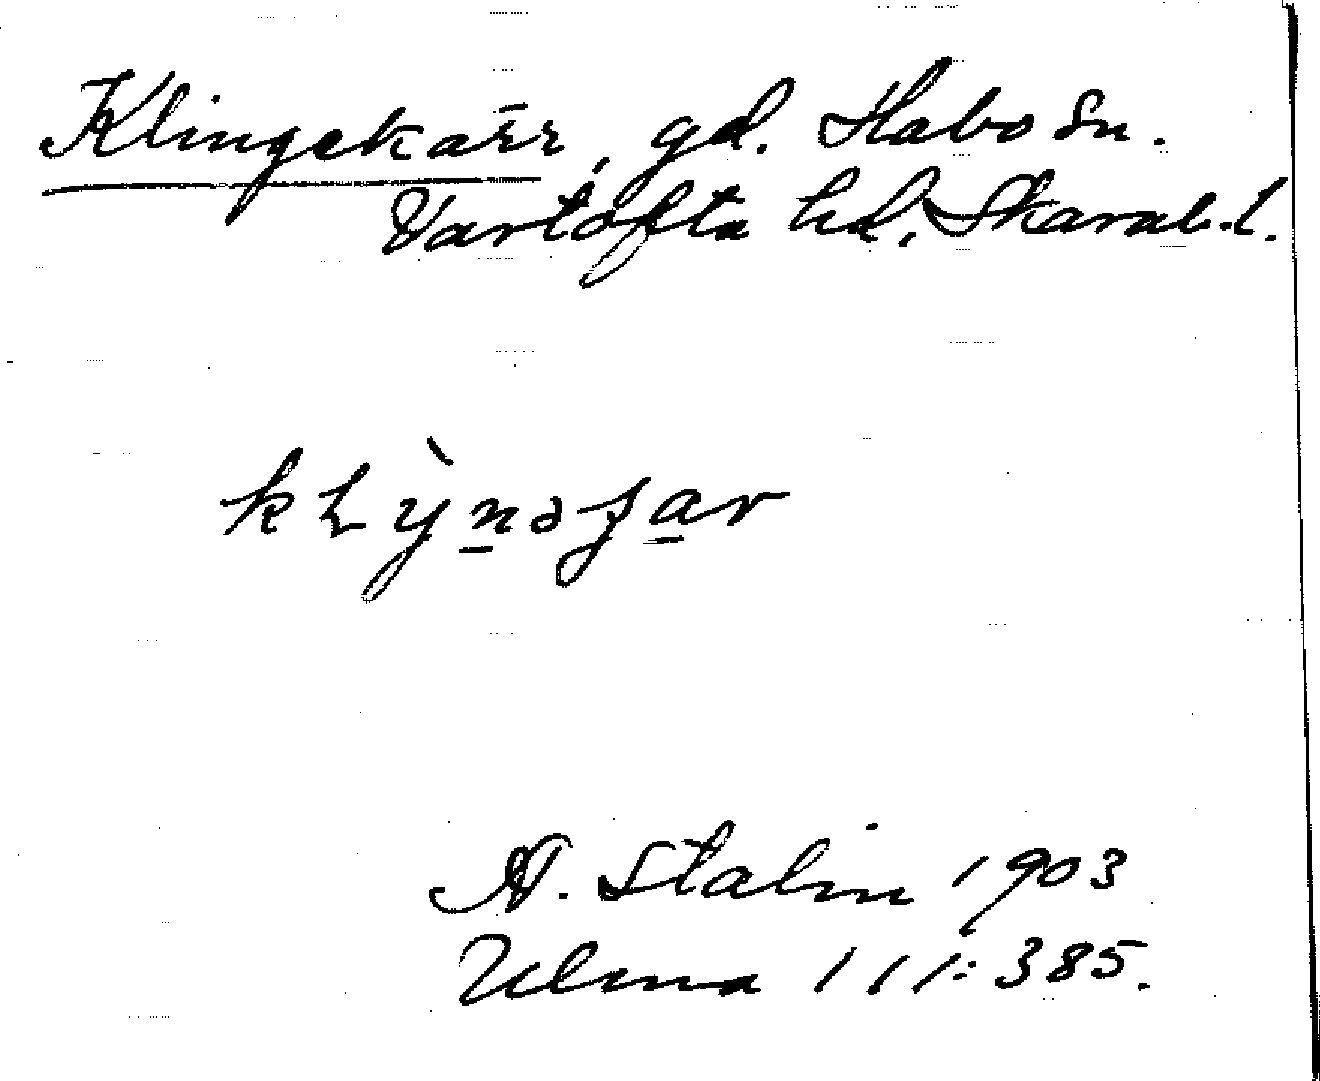 Klingekärr, gd. Habo sn.
Vartofta hd, Skarab. l.
A. Stalin 1903
Ulma 111:385.